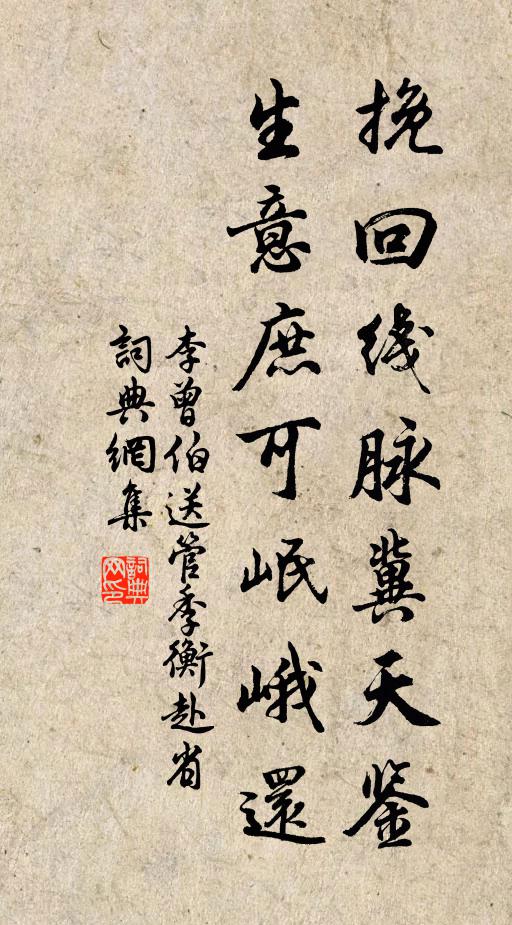 挽回线脉冀天鉴
生意庶可岷峨還
李曾伯送管季衡赴省
詞典網集
詞典
网印